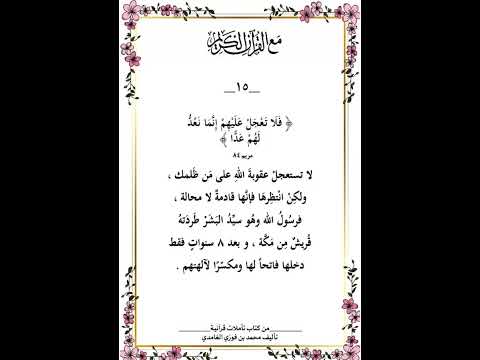 مع القرآن الكريم
__١٥__
﴿ فَلَا تَعْجَلْ عَلَيْهِمْ إِنَّمَا نَعُدُّ
لَهُمْ عَدًّا ﴾
مريم ٨٤
لا تستعجلْ عقوبةَ اللهِ على مَن ظَلمك ،
ولكِنْ انْتظِرهَا فإنَّها قادمةٌ لا محالة ،
فرسُولُ الله وهُو سيِّدُ البَشَرْ طَردَتهُ
قُريشٌ مِن مَكَّة ، و بعد ٨ سنواتٍ فقط
دخلها فاتحاً لها ومكسّرًا لآلهتهم .
________من كتاب تأملات قرآنية________
تأليف محمد بن فوزي الغامدي